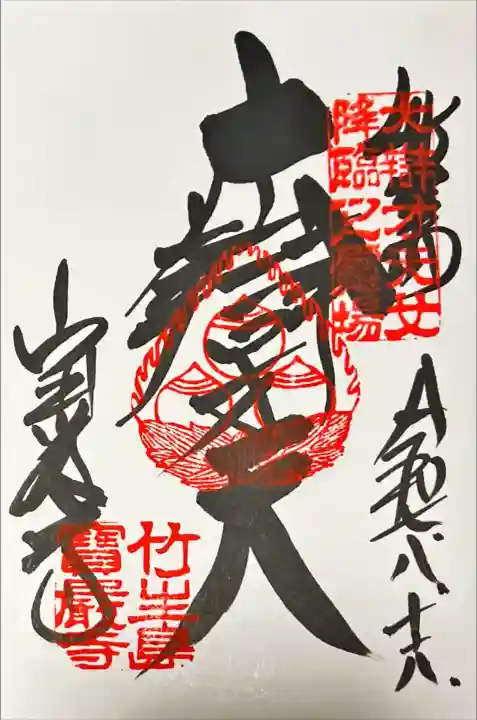 大辯才天女
降臨之霊場
竹生島
大辯才天
宝厳寺
竹生島
寶嚴寺